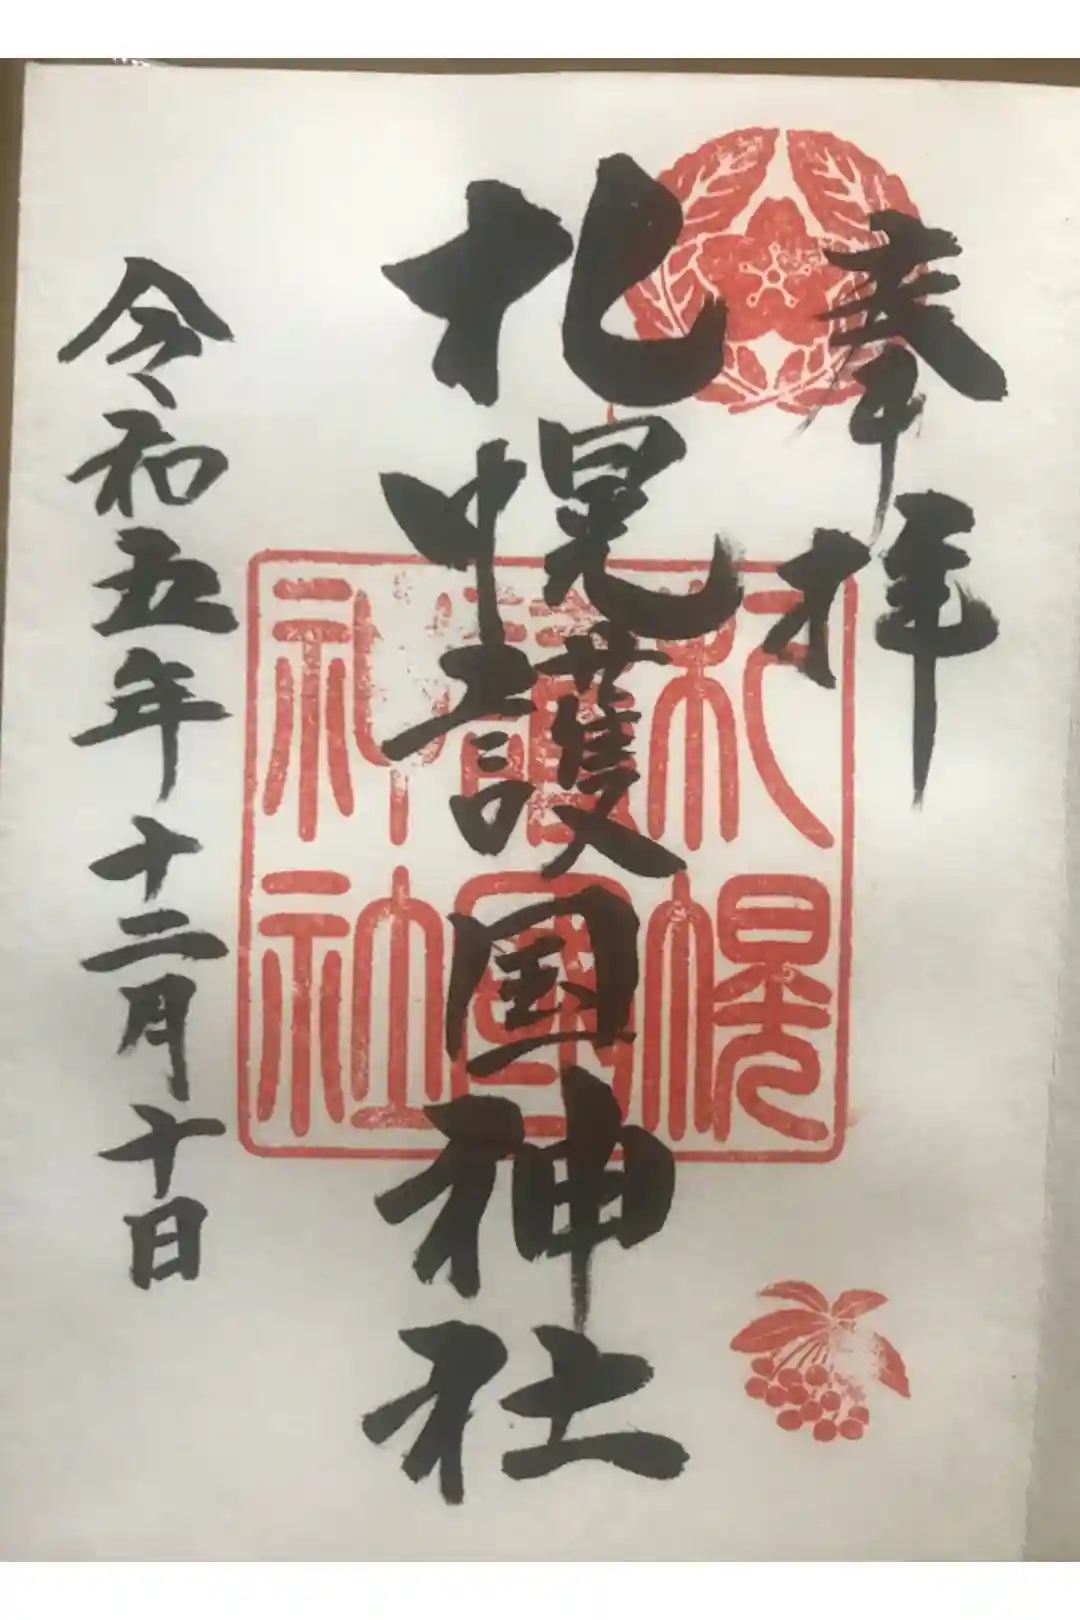 奉拝
札幌護国神社
令和五年十二月十日
札幌
護國
神社